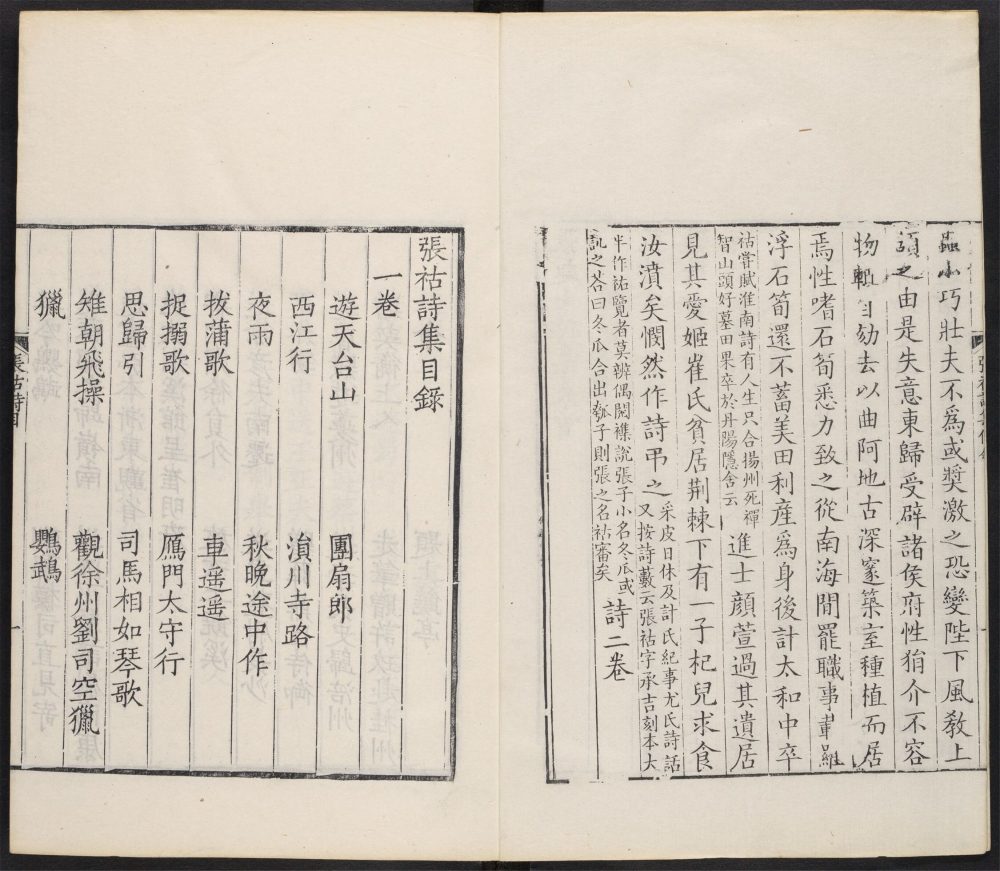 蟲小巧壯夫不爲或奬激之恐變陛下風敎上
頷之由是失意東歸受辟諸侯府性狷介不容
物輙自劾去以曲阿地古深邃築室種植而居
焉性嗜石筍悉力致之從南海間罷職事載羅
浮石筍還不蓄美田利產爲身後計太和中卒
祜嘗賦淮南詩有人生只合揚州死禪
智山頭好墓田果卒於丹陽隱舍云
進士顔萱過其遺居
見其愛姬崔氏貧居荆棘下有一子杞兒求食
汝濆矣憫然作詩弔之
采皮日休及計氏紀事尤氏詩話
又按詩藪云張祜字承吉刻本大
半作祐覽者莫辨偶閱襍說張子小名冬瓜或
訊之荅曰冬瓜合出瓠子則張之名祜審矣
詩二卷
張祜詩集目錄
一卷
遊天台山 團扇郎
西江行 湞川寺路
夜雨 秋晚途中作
拔蒲歌 車遥遥
捉搦歌 鴈門太守行
思歸引 司馬相如琴歌
雉朝飛操 觀徐州劉司空獵
獵 鸚鵡
張祜詩目
一